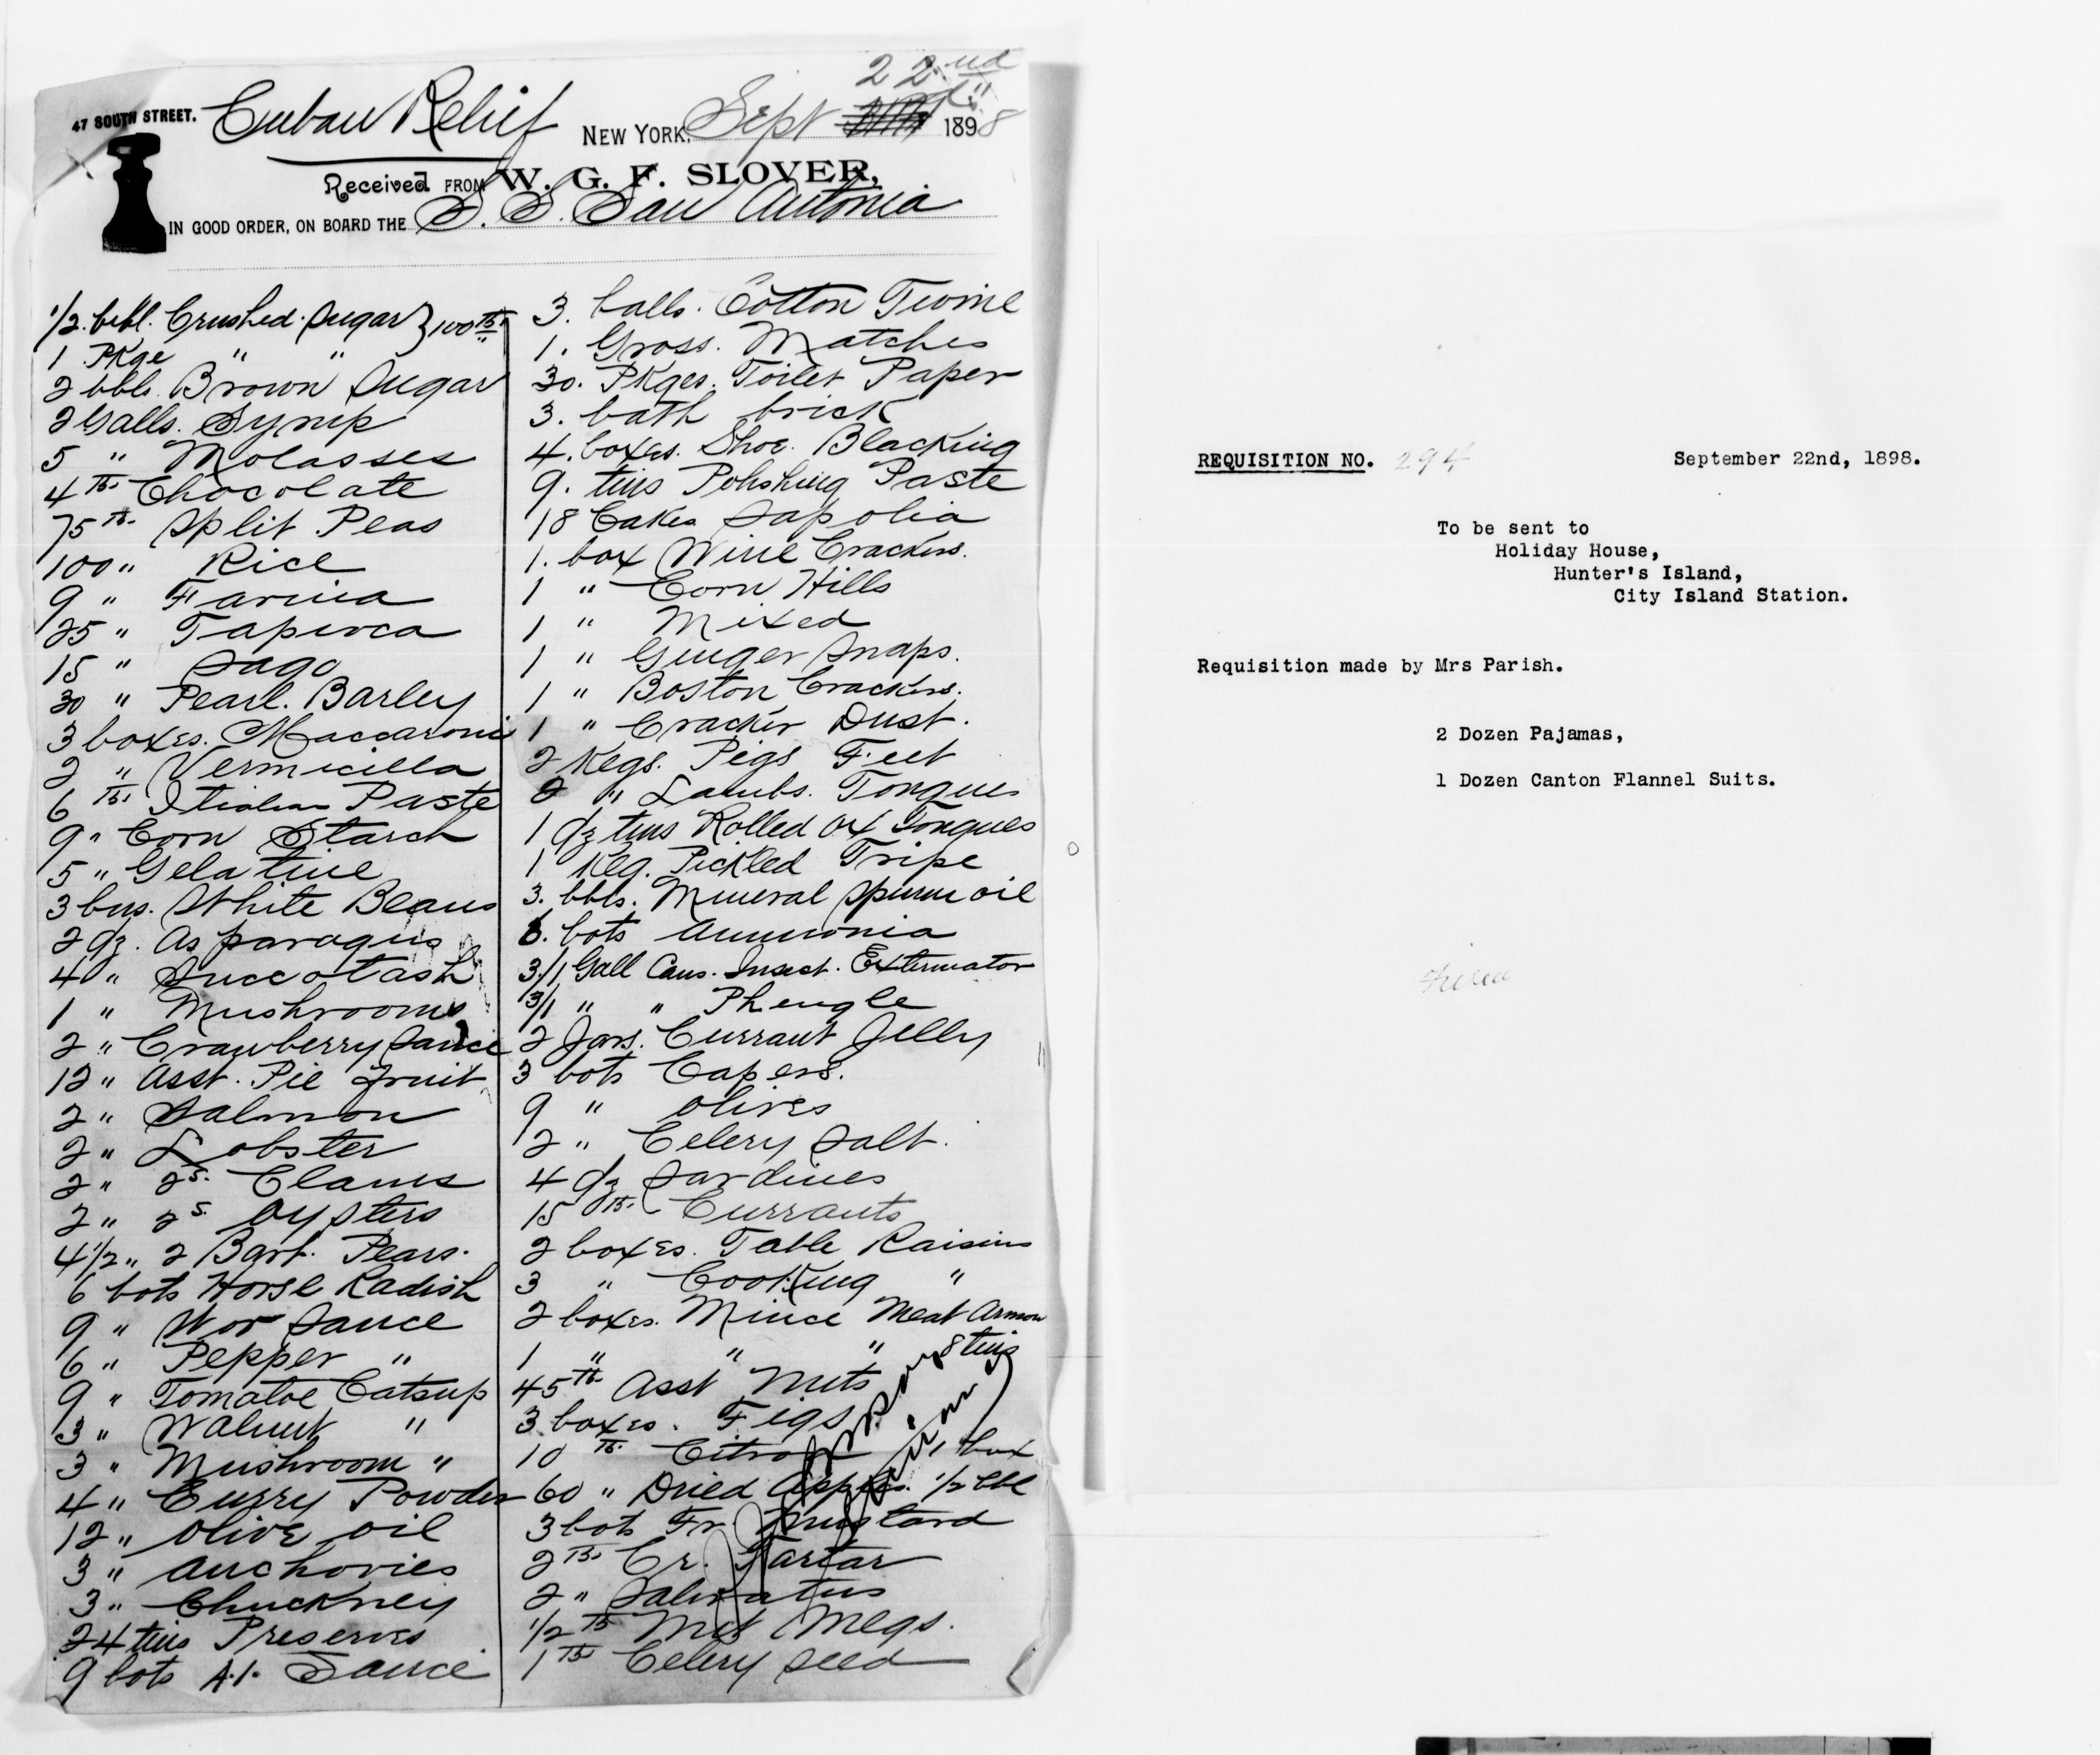 22nd
47 SOUTH STREET. Cuban Relief NEW YORK, Sept 1898
Received FROM W. G. F. SLOVER,
IN GOOD ORDER, ON BOARD THE S. S. San Antonia
1/2. bbl. Crushed Sugar } 100 lbs
1 Pkge " "
2 bbls. Brown Sugar
2 Galls. Syrup
5 " Molasses
4 lbs Chocolate
75 lbs Split Peas
100 " Rice
9 " Farina
25 " Tapioca
15 " Sago
30 " Pearl. Barley
3 boxes. Maccaroni
2 " Vermicilla
6 lbs Italian Paste
9 " Corn Starch
5 " Gelatine
3 bus. White Beans
2 dz. Asparagus
4 " Succotash
1 " Mushrooms
2 " Cranberry Sauce
12 " Asst. Pie Fruit
2 " Salmon
2 " Lobster
2 " 2s. Clams
2 " 2s. Oysters
4 1/2 " 2 Bart. Pears.
6 bots Horse Radish
9 " Wor Sauce
6 " Pepper "
9 " Tomatoe Catsup
3 " Walnut "
3 " Mushroom "
4 " Curry Powder
12 " Olive oil
3 " Anchovies
3 " Chuckney
24 tins Preserves
9 bots A.1. Sauce
3. balls. Cotton Twine
1. Gross. Matches
30. Pkges. Toilet Paper
3. bath brick
4. boxes. Shoe. Blacking
9. tins Polishing Paste
18 Cakes Sapolia
1. box Wine Crackers.
1 " Corn Hills
1 " Mixed
1 " Ginger Snaps.
1 " Boston Crackers.
1 " Cracker Dust.
2 Kegs. Pigs Feet
2 " Lambs. Tongues
1 dz tins Rolled Ox Tongues
1 Keg. Pickled Tripe
3. bbls. Mineral Sperm oil
6. bots Ammonia
3/1 Gall Cans. Insect. Exterminator
3/1 " " Phengle
2 Jars. Currant Jelly
3 bots Capers.
9 " Olives
2 " Celery Salt.
4 dz Sardines
15 lbs. Currants
2 boxes. Table Raisins
3 " Cooking "
2 boxes. Mince Meat Armour
1 " " " 8 tins
45 lb. Asst Nuts
3 boxes. Figs
10 lb. Citron 1 box
60 " Dried Apples. 1/2 bbl
3 bots Fr. Mustard
2 lbs Cr. Tartar
2 " Saleratus
1/2 lb Nut Megs.
1 lb Celery seed
REQUISITION NO. 294 September 22nd, 1898.
To be sent to
Holiday House,
Hunter's Island,
City Island Station.
Requisition made by Mrs Parish.
2 Dozen Pajamas,
1 Dozen Canton Flannel Suits.